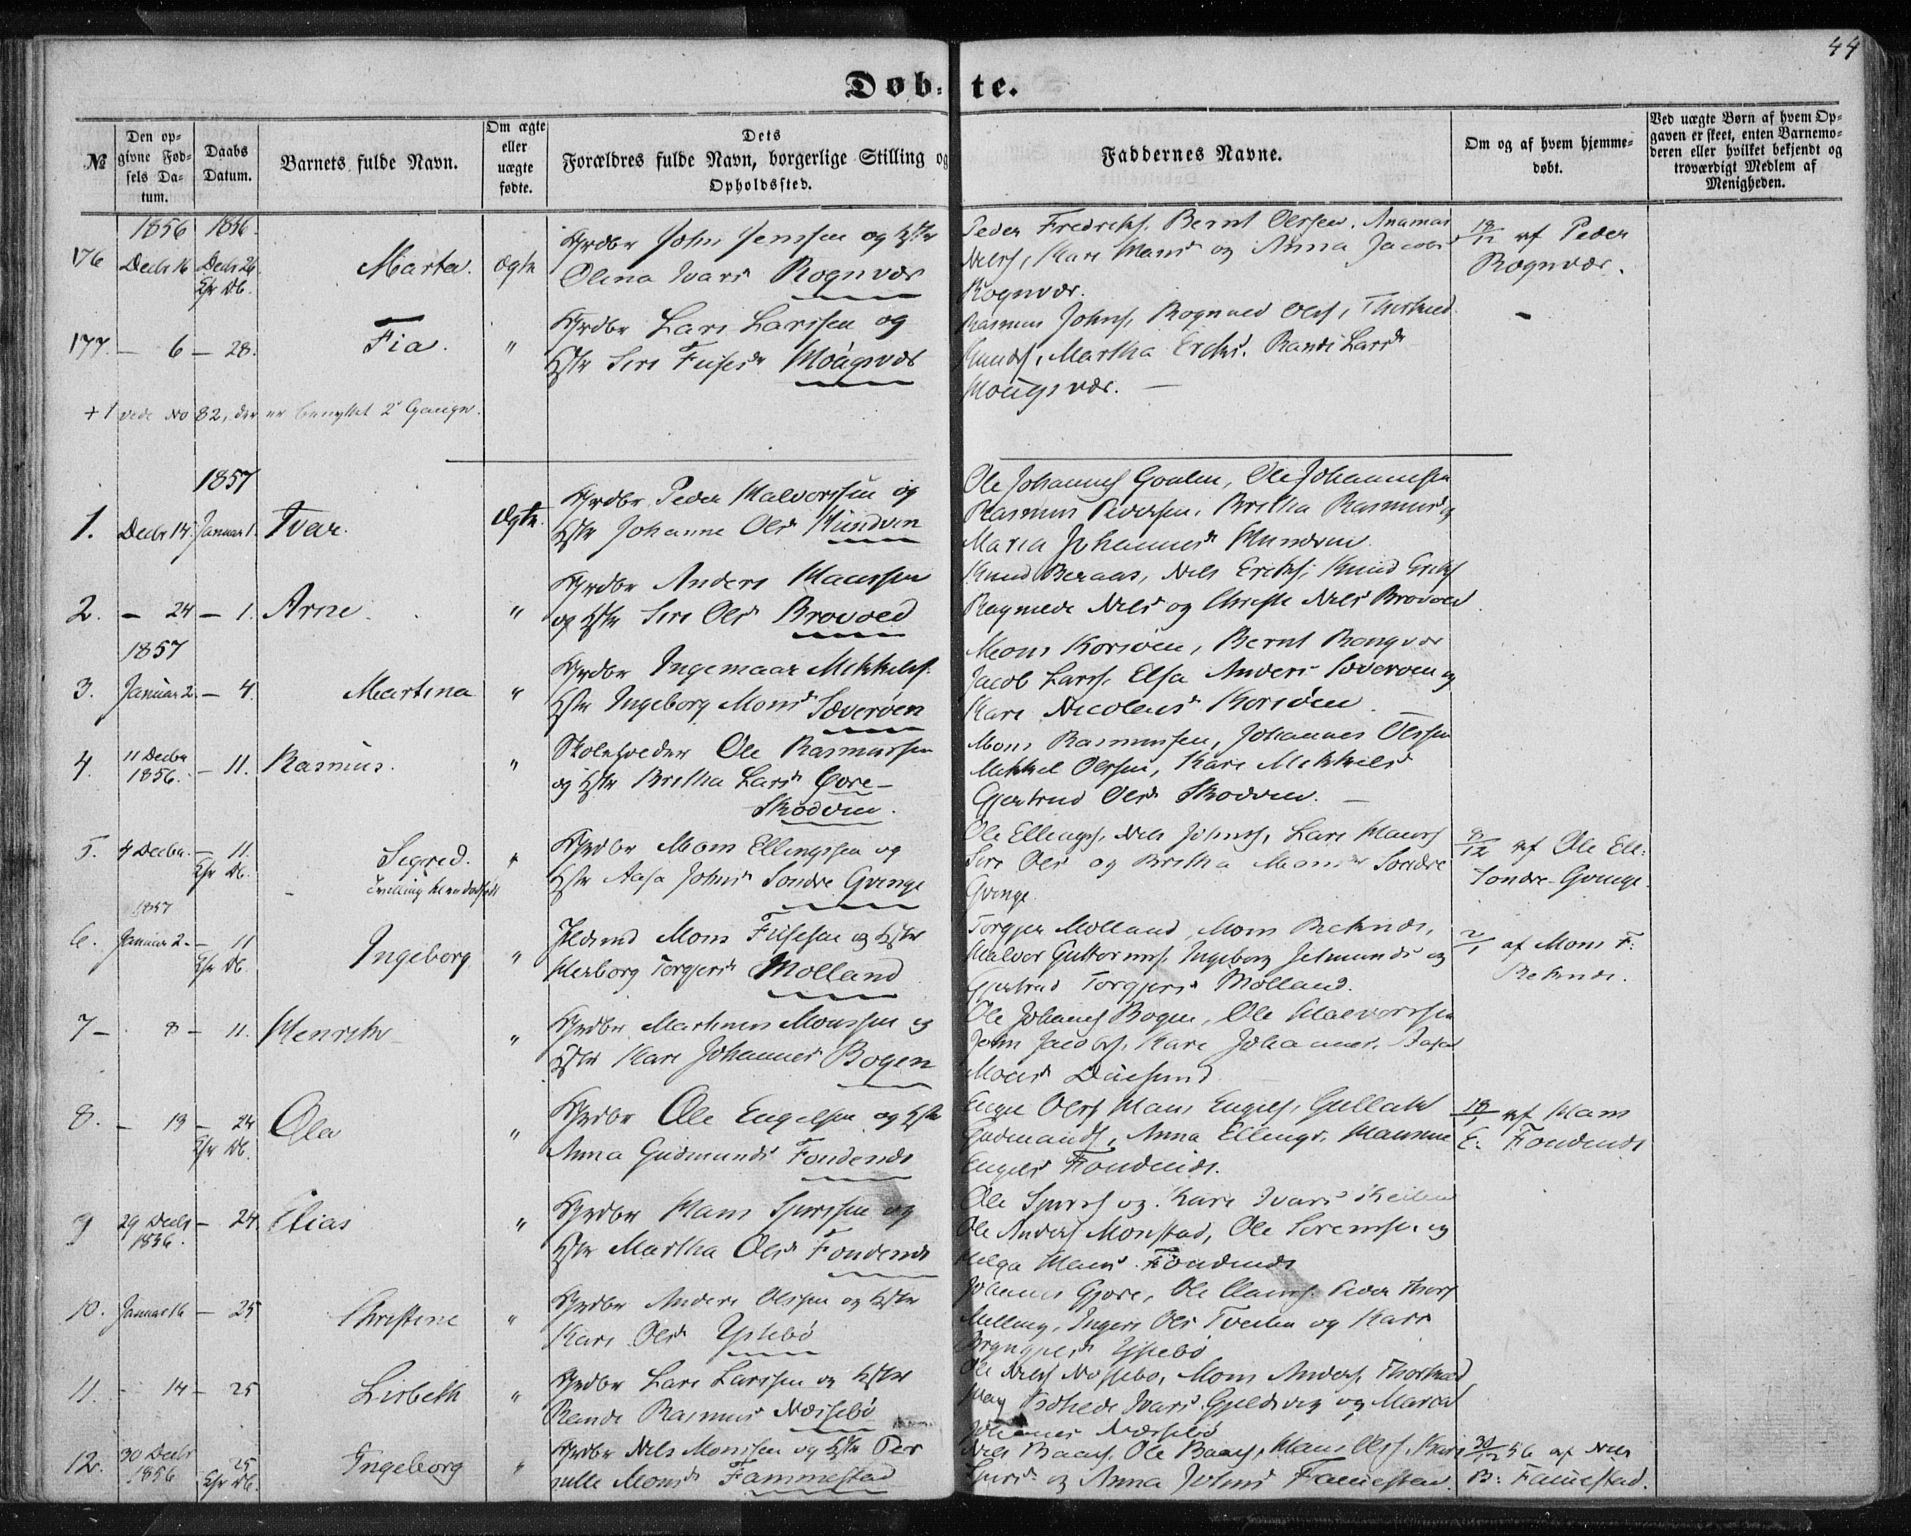 44
Døb= te.
№ | Den op-givne Fød-sels Da-tum. | Daabs Datum. | Barnets fulde Navn. | Om ægte eller uægte fødte. | Dets Forældres fulde Navn, borgerlige Stilling og Opholdssted. | Faddernes Navne. | Om og af hvem hjemme-døbt. | Ved uægte Børn af hvem Op-gaven er skeet, enten Barnemo-deren eller hvilket bekjendt og troværdigt Medlem af Menigheden.
1856 1856.
176 Decbr 16 Decbr 26 Kfr Db. Marta. Ægte
Grdbr John Jensen og Hstr
Olina Ivarsd Rognvær
Peder Fredriks. Bernt Olssen. Anamar
Nilsd, Kari Hansd og Anna Jacobsd
Rognvær.
18/12 af Peder
Rognvær.
177. – 6 – 28. Fia. "
Grdbr Lars Larssen og
Hstr Siri Fusesd Moügsvær
Rasmus Johns, Rognald Ols, Thorstued
Knuds, Martha Eriks. Randi Larsd
Mougsvær. –
–
+ 1 vide No 82, der er benyttet 2 Gange.
1857
1. Decbr 14. Januar 1. Ivar. Ægte.
Grdbr Peder Halvorssen og
Hstr Johanne Olsd Hundven
Ole Johannes Gaulen, Ole Johannessen
Rasmus Pedersen, Britha Rasmusd og
Maria Johannesd Hundven.
2. – 24 – 1. Arne. "
Grdbr Anders Hanssen
og Hstr Siri Olsd Brovold
Knud Beraas, Nils Eriks, Knud Eriks
Ragnilde Nilsd og Christi Nilsd Brovold.
1857
3. Januar 2. – 4. Martina "
Grdbr Ingemaar Mikkels.
Hstr Ingeborg Monsd Sæverøen
Mons Korsøen, Bernt Rongvær
Jacob Larss, Elsa Andersd Sæverøen og
Kari Nicolaisd Korsøen
4. 11 Decbr 1856. – 11. Rasmus. "
Skoleholder Ole Rasmussen
og Hstr Britha Larsd Øvre-
Skodven.
Mons Rasmussen, Johannes Olssen
Mikkel Olssen, Kari Mikkelsd
Gjertrud Olsd Skodven. –
5. 4 Decbr. – 11. Kfr Db. Sigrid. "
Tvilling til en dødfødt
Grdbr Mons Ellingssen og
Hstr Aasa Johnsd Søndre Qvinge
Ole Ellings, Nils Johns, Lars Hans
Siri Olsd og Britha Monsd Søndre
Qvinge
8/12 af Ole Ell:
Søndre Qvinge.
1857
6. Januar 2. – 11 Kfr Db Ingeborg "
Mons Fusesen og Hstr
Herborg Torgjersd Molland
Torgjer Molland, Mons Reknæs,
Halvor Guttorms, Ingeborg Jetmundsd og
Gjertrud Torgjersd Molland.
2/1 af Mons F:
Reknæs.
7 – 8 – 11. Henrik "
Grdbr Martinus Monssen og
Hstr Kari Johannesd Bogen
Ole Johans Bogen, Ole Halvorssen
John Jacobs, Kari Johannesd.
Monsd Duesund
8. – 13 – 24 Kfr Db. Ola "
Grdbr Ole Engelsen og Hstr
Anna Gudmundsd Fondenæs
Engel Ols, Hans Engels, Gullak
Gudmunds, Anna Ellingsd.
Engelsd Fondenæs.
18/1 af Hans
E: Fondenæs
9 29 Decbr 1856. – 24. Elias "
Grdbr Hans Sjurssen og
Hstr Martha Olsd Fondenæs
Ole Sjurs og Kari Ivarsd
Ole Anders Monstad, Ole Sørens. og
Helga Hansd Fondenæs
10. Januar 16 – 25 Christine "
Grdbr Anders Olssen og Hstr
Kari Olsd Ystebø
Johannes Gjøre, Ole Peder Thors
Melling, Inger Olsd Tveiten og Kari
Ystebø
11. – 14 – 25 Lisbeth "
Grdbr Lars Larssen og Hstr
Randi Rasmusd Næssebø
Ole Nils Næssebø, Mons Anders, Thorstued
Ivarsd Gjeldsvig og Marta
Johannesd Næssebø
12. 30 Decbr 1856 – 25 Kfr Db. Ingeborg "
Grdbr Nils Monssen og Hstr Per
nille Monsd Fammestad
Nils Baars, Ole Baars, Hans Ols, Kari
Sjursd og Anna Johnsd Famestad.
30/12 56 af Nils
B: Famestad.